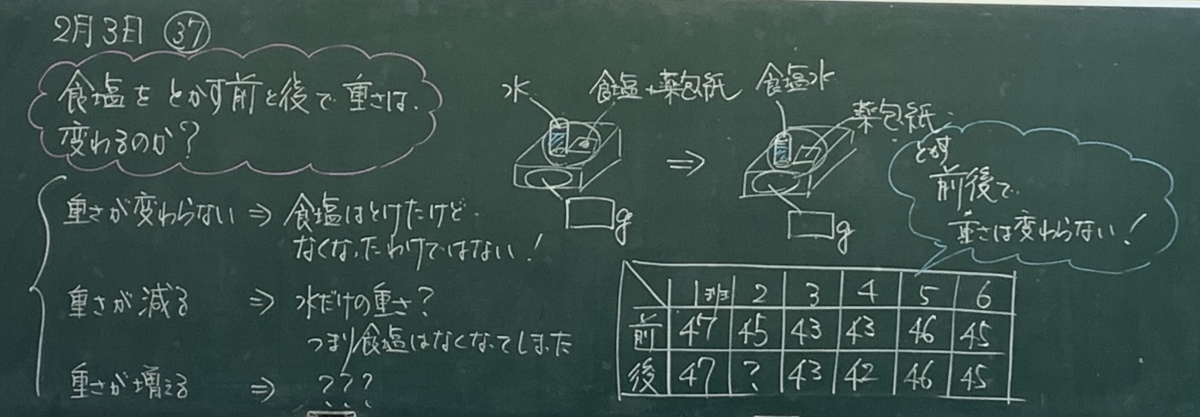 2月3日 ㊲
食塩を とかす前と後で 重さは、
変わるのか?
重さが変わらない ⇒ 食塩はとけたけど、
なくなったわけではない!
重さが減る ⇒ 水だけの重さ?
つまり食塩はなくなってしまった
重さが増える ⇒ ???
水 食塩+薬包紙
g
⇒
食塩水 薬包紙
g
とかす
前後で
重さは変わらない!
1班 2 3 4 5 6
前 47 45 43 43 46 45
後 47 ? 43 42 46 45